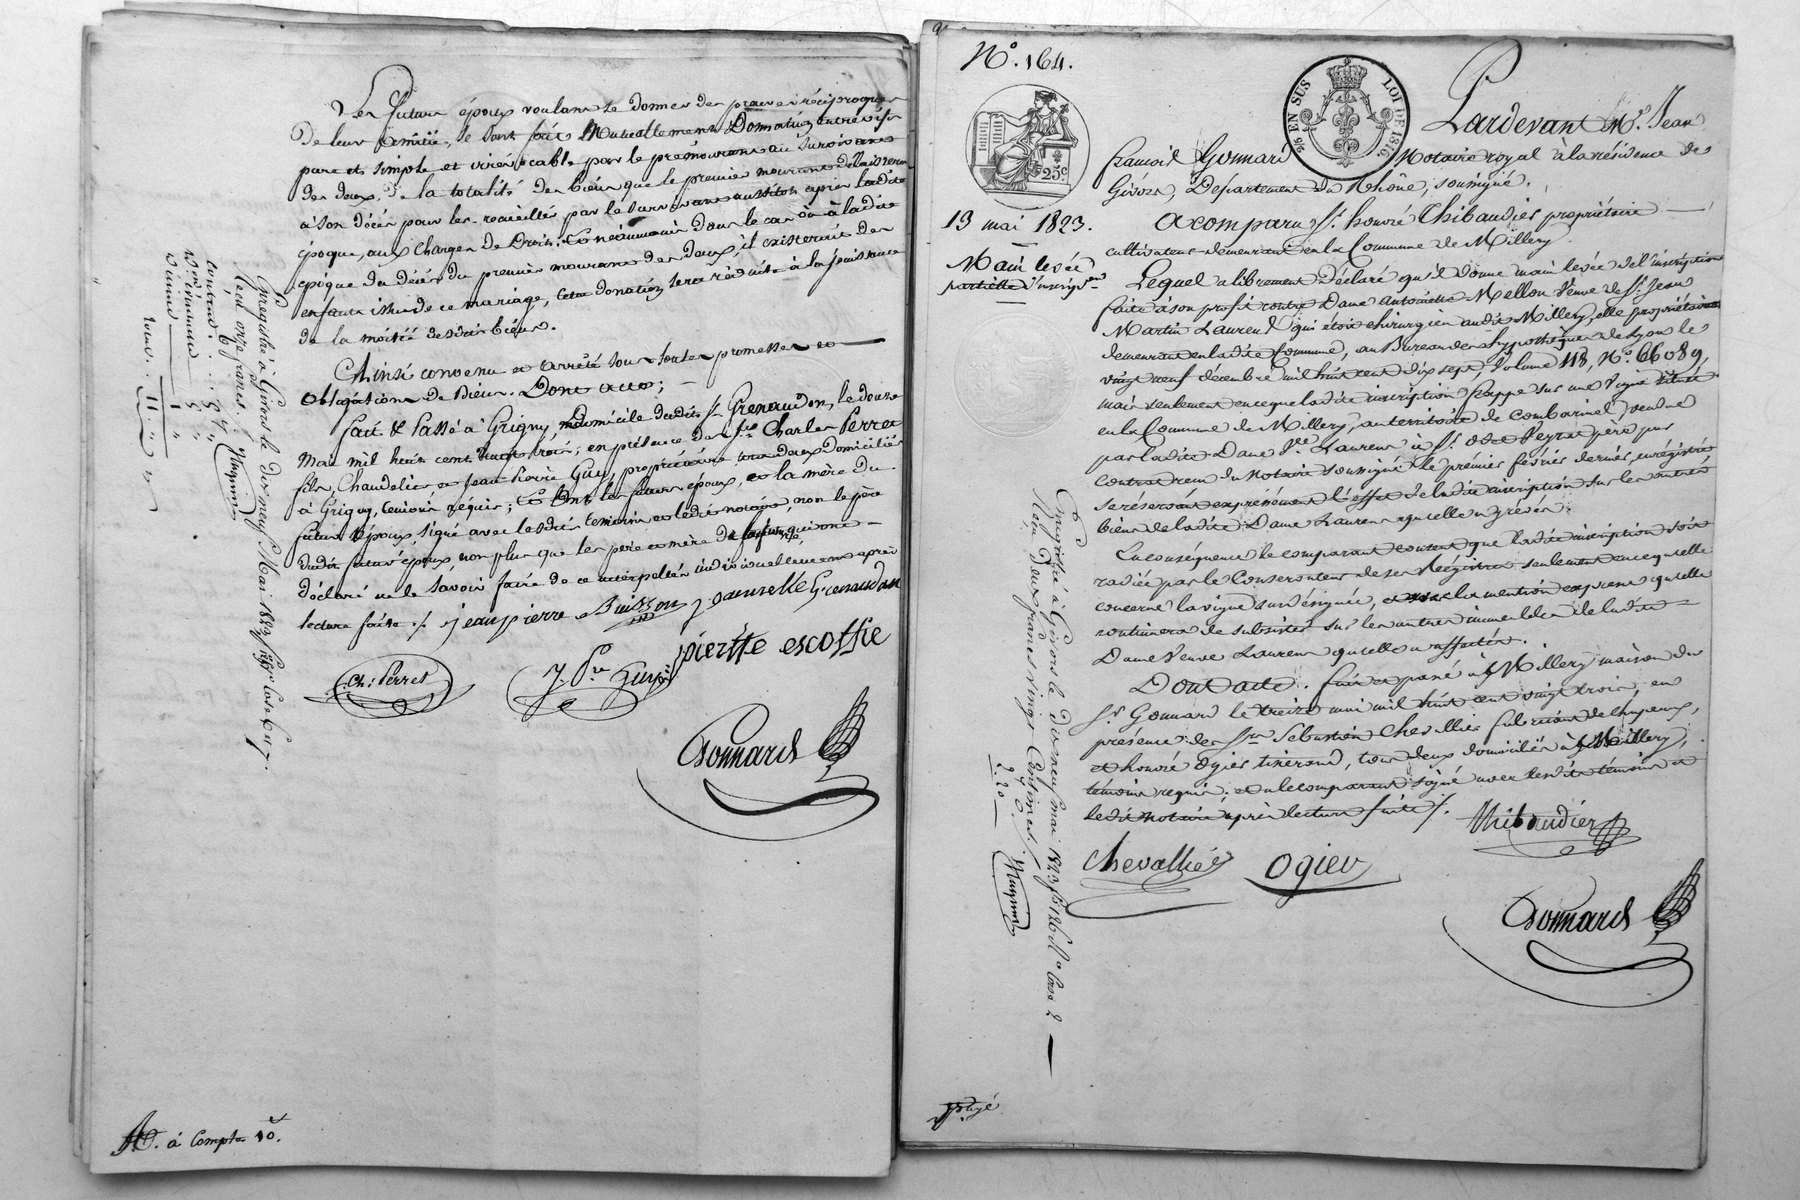 Les futurs époux voulant se donner des preuves réciproques
de leur amitié, se sont fait mutuellement Donation entrevifs
pure et simple et irrévocable par le prémourant au survivant
des deux, de la totalité des biens que le premier mourant délaissera
à son décès pour les recueillir par le survivant aussitôt après ladite
époque, aux charges de Droit; Et néanmoins dans le cas où à ladite
époque du décès du premier mourant des deux, il existerait des
enfants issus de ce mariage, cette donation sera réduite à la jouissance
de la moitié desdits biens.
Ainsi convenu et arrêté sous toutes promesses et
obligations de Biens. Dont acte;
fait & Passé à Grigny, domicile dudit Sr. Grenaudon, le douze
Mai mil huit cent vingt trois; en présence des Srs Charles Perret
fils, Chandelier et Jean Pierre Guy, propriétaire tous deux domiciliés
à Grigny, témoins requis; Et ont les futurs époux, et la mère du
futur époux, signé avec lesdits témoins et ledit notaire, non le père
dudit futur époux, non plus que les père et mère de la future, qui ont
déclaré ne le savoir faire de ce interpellés individuellement après
lecture faite ./. jean pierre Buisson jeannette Grenaudon
pierette escoffie
Ch: Perret
J. Pre Guy
Gonnard
Enregistré à Givors le dix neuf Mai 1823
Reçu onze francs.
contrat 6
Donation 5
total 11
à Compte 10.
N°. 164.
96 EN SUS LOI DE 1816
25c
Pardevant Me. Jean
françois Gonnard Notaire royal à la résidence de
Givors, Département du Rhône, soussigné.
13 mai 1823.
Main levée
partielle d'inscripon
A comparu Sr. honoré Thibaudier propriétaire
cultivateur demeurant en la Commune de Millery.
Lequel a librement déclaré qu'il donne main levée de l'inscription
faite à son profit contre Dame antoinette Mellon Veuve de Sr. Jean
Martin Laurent qui étoit chirurgien audit Millery, elle propriétaire
demeurant en ladite Commune, au Bureau des hypothèques de Lyon le
vingt neuf décembre mil huit cent dix sept, Volume 118, N°. 66089,
mais seulement en ce que ladite inscription frappe sur une vigne située
en la Commune de Millery, au territoire de Combarinel, vendue
par ladite Dame Ve. Laurent à Sr. Peyrat père par
contrat reçu du Notaire soussigné le premier février dernier, enregistré
se réservant expressément l'effet de ladite inscription sur les autres
biens de ladite Dame Laurent qu'elle y grève.
En conséquence le comparant consent que ladite inscription soit
radiée par le Conservateur de ses Registres seulement en ce qu'elle
concerne la vigne susdésignée, et sous la mention expresse qu'elle
continuera de subsister sur les autres immeubles de ladite
Dame Veuve Laurent qu'elle a affectés.
Dont acte. fait et passé à Millery maison du
Sr. Gonnard le treize mai mil huit cent vingt trois, en
présence des Srs Sébastien Chevallier fabricant de chapeaux,
et honoré Ogier tisserand, tous deux domiciliés à Millery,
témoins requis; et a le comparant signé avec lesdits témoins et
ledit notaire après lecture faite ./. Thibaudier
Chevallier Ogier
Gonnard
Enregistré à Givors le dix neuf mai 1823 fo 126 Vo Case 2
Reçu Deux francs vingt Centimes.
2.20
payé